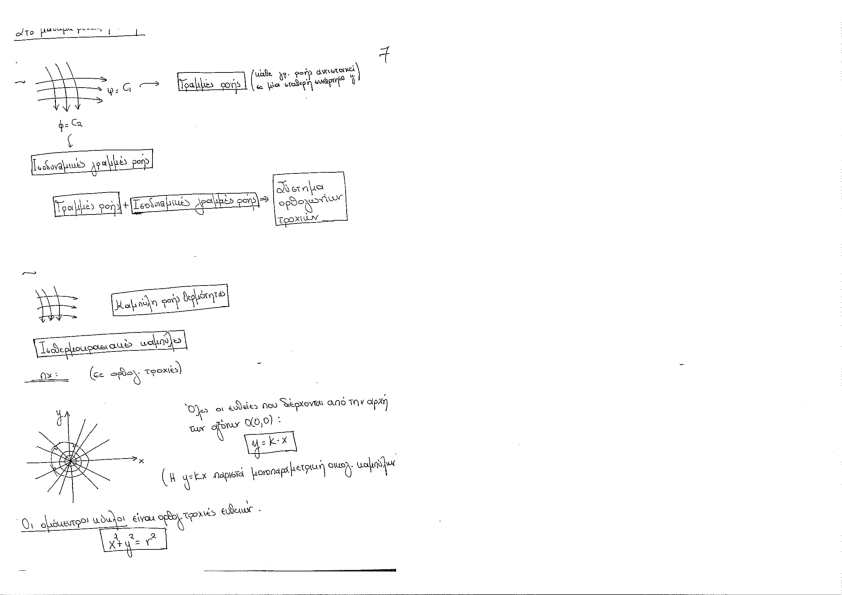 στο
7
ψ = C₁ → Γραμμές ροής (κάθε γρ. ροής αντιστοιχεί
σε μία σταθερή ψ)
φ = C₂
Ισοδυναμικές γραμμές ροής
Γραμμές ροής + Ισοδυναμικές γραμμές ροής ⇒ σύστημα
ορθογωνίων
τροχιών
Καμπύλη ροής θερμότητας
Ισοθερμοκρασιακές καμπύλες
πχ: (σε ορθογ. τροχιές)
Όλες οι ευθείες που διέρχονται από την αρχή
των αξόνων Ο(0,0):
y = k·x
(Η y=kx παριστά μονοπαραμετρική οικογ. καμπύλων
y
x
Οι ομόκεντροι κύκλοι είναι ορθογ. τροχιές ευθειών.
x² + y² = r²